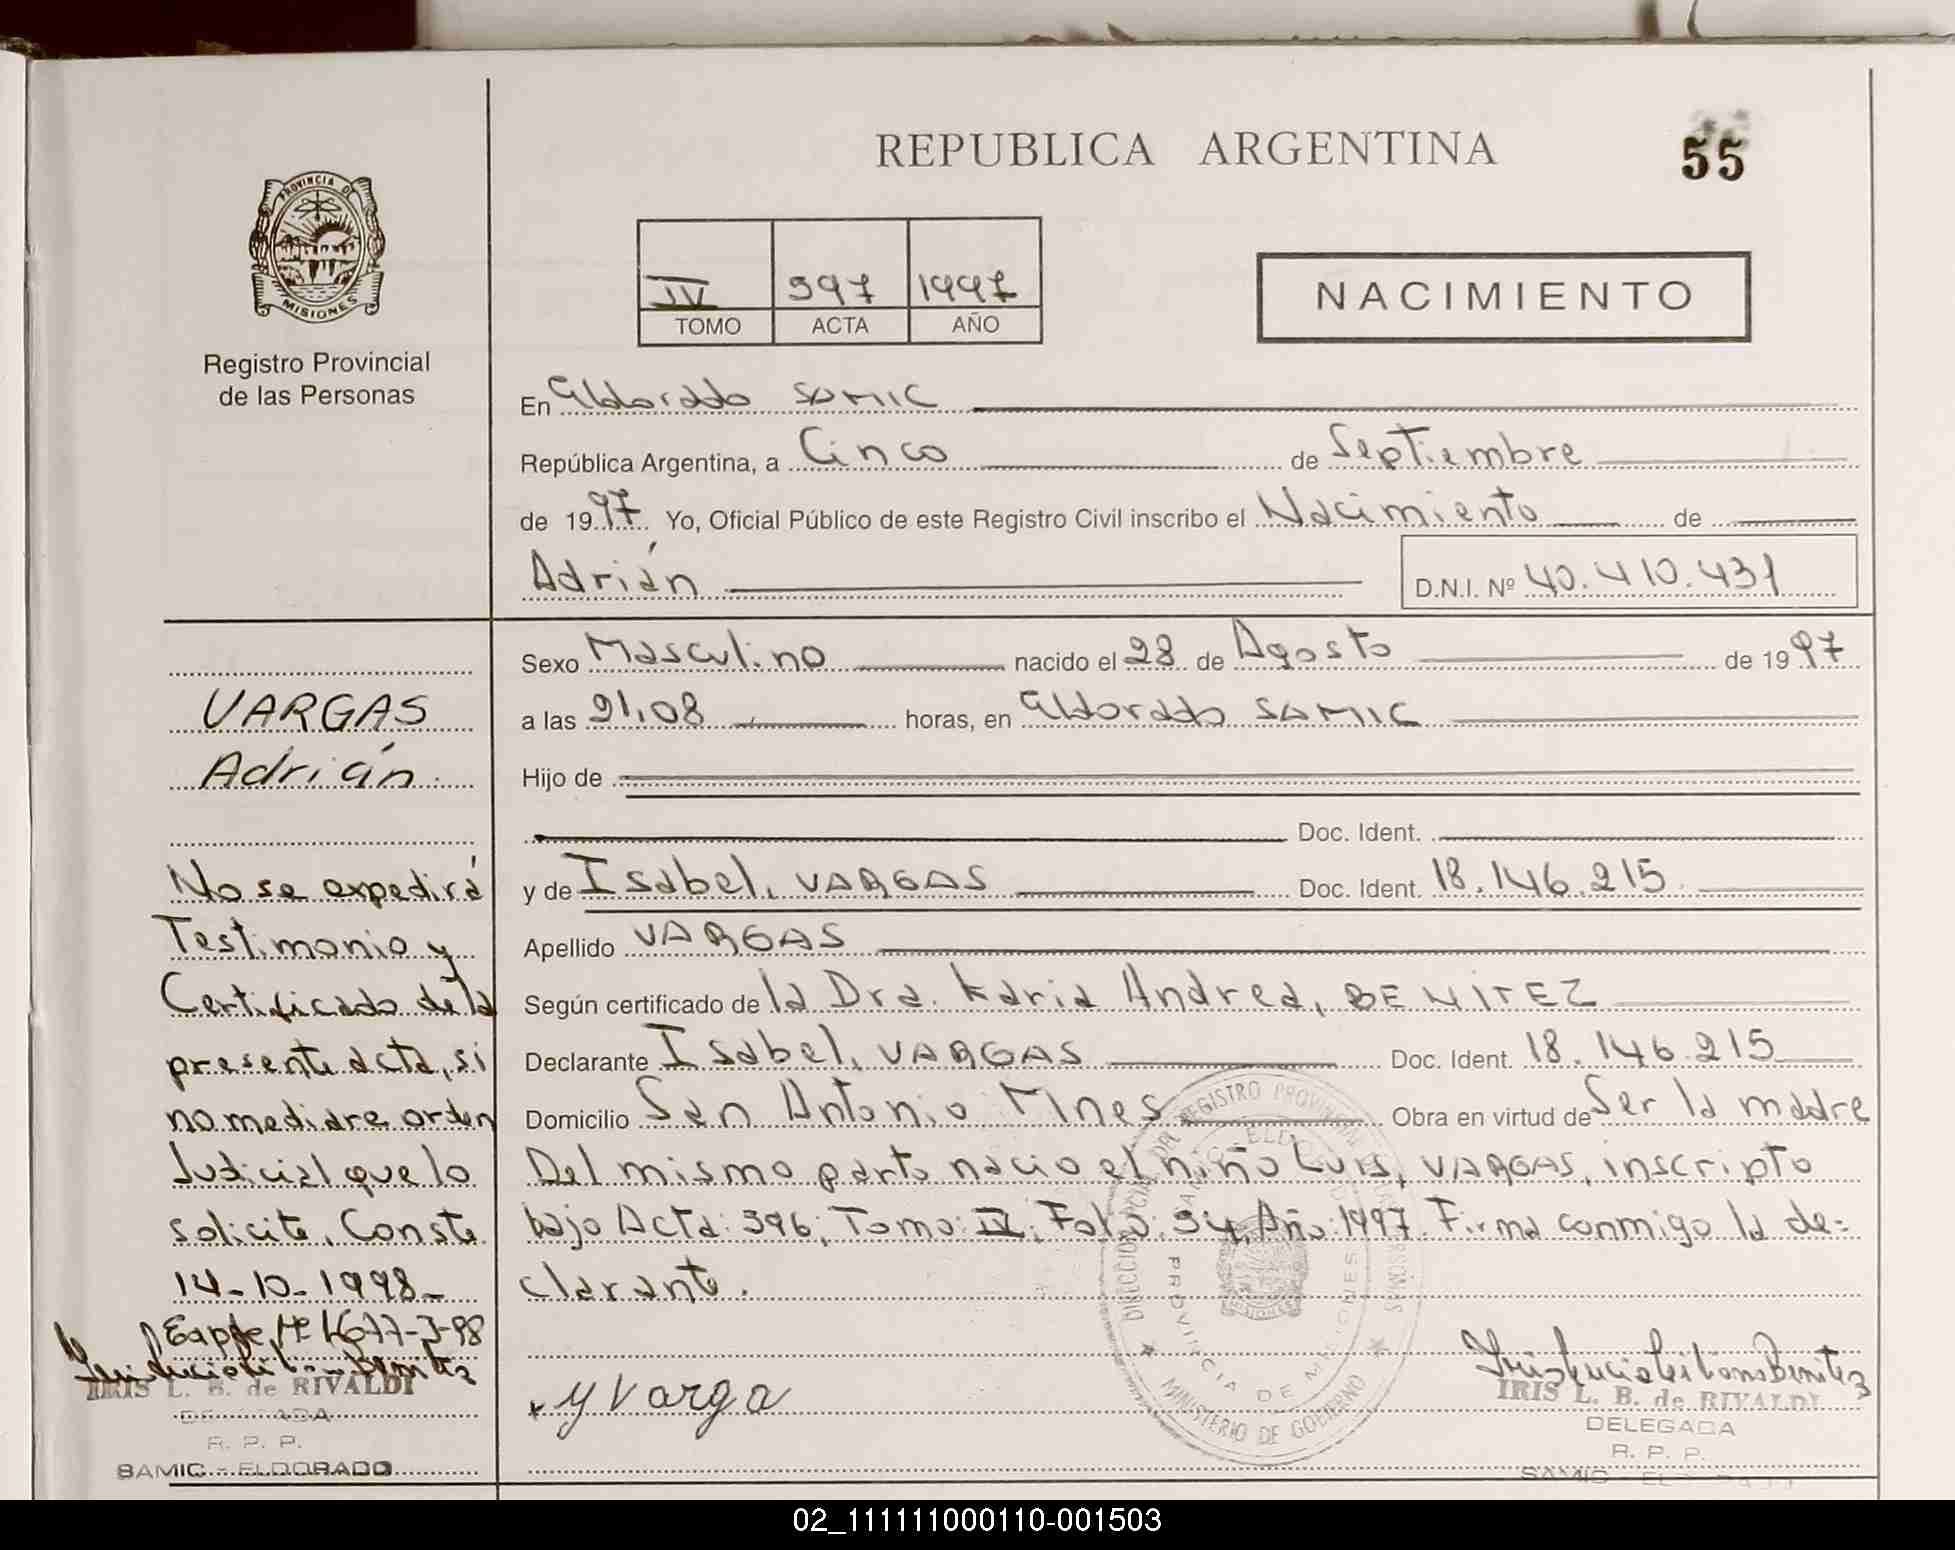 REPUBLICA ARGENTINA
55
PROVINCIA DE
MISIONES
Registro Provincial
de las Personas
IV 597 1997
TOMO ACTA AÑO
NACIMIENTO
En Eldorado SAMIC
República Argentina, a Cinco de Septiembre
de 1997 Yo, Oficial Público de este Registro Civil inscribo el Nacimiento de
Adrián D.N.I. Nº 40.410.431
Sexo Masculino nacido el 28 de Agosto de 1997
a las 21,08 horas, en Eldorado SAMIC
Hijo de
Doc. Ident.
y de Isabel, VARGAS Doc. Ident. 18.146.215
Apellido VARGAS
Según certificado de la Dra. Karia Andrea, BENITEZ
Declarante Isabel, VARGAS Doc. Ident. 18.146.215
Domicilio San Antonio Mnes Obra en virtud de Ser la madre
Del mismo parto nacio el niño Luis, VARGAS, inscripto
bajo Acta: 596, Tomo: IV, Folio: 54, Año: 1997. Firma conmigo la de=
clarante.
y Varga
IRIS L. B. de RIVALDI
DELEGADA
R. P. P.
SAMIC - EL
VARGAS
Adrián
No se expedirá
Testimonio y
Certificado de la
presente acta, si
no mediare orden
Judicial que lo
solicite. Conste
14-10-1998-
IRIS L. B. de RIVALDI
R. P. P.
SAMIC - ELDORADO
MINISTERIO DE GOBIERNO
PROVINCIA DE MISIONES
02_111111000110-001503